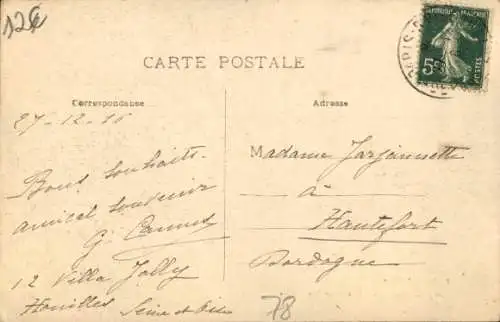 12€
CARTE POSTALE
Correspondance
Adresse
27-12-16
Bons souhaits
amical souvenir
G. Cannes
12 Villa Jolly
Houilles Seine et Oise
Madame Jarjannette
à
Hautefort
Dordogne
78
PARIS
5c
POSTES